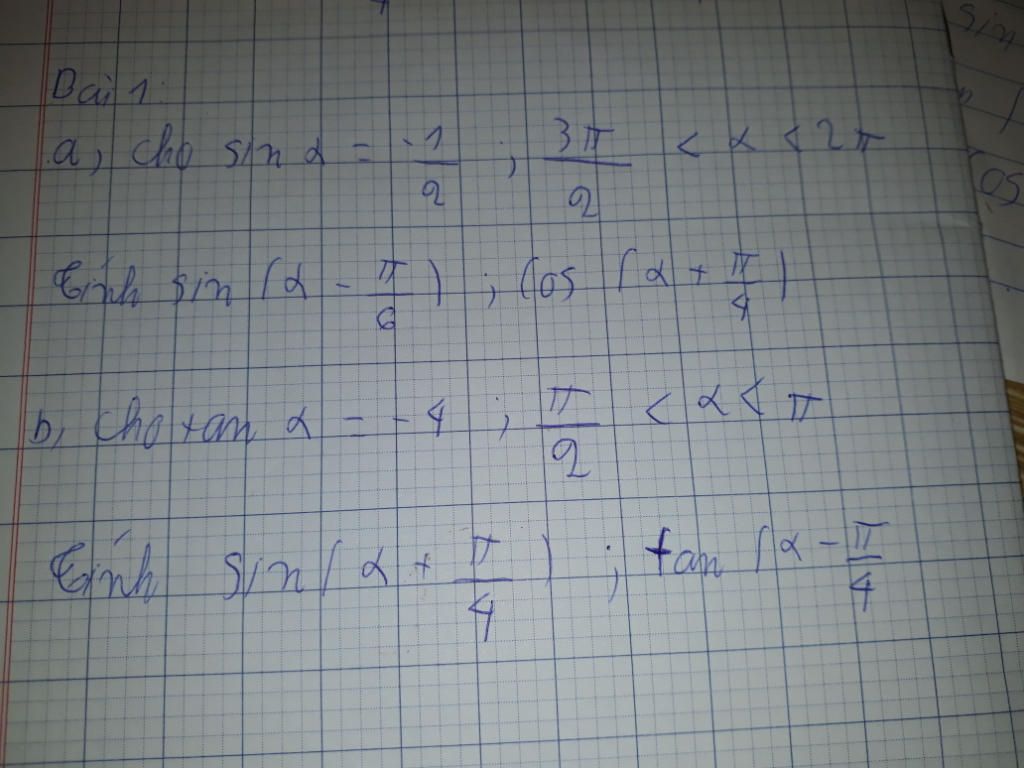 Bài 1:
a, cho sin α = -1/2 ; 3π/2 < α < 2π
Tính sin (α - π/6) ; cos (α + π/4)
b, cho tan α = -4 ; π/2 < α < π
Tính sin (α + π/4) ; tan (α - π/4
sin
os